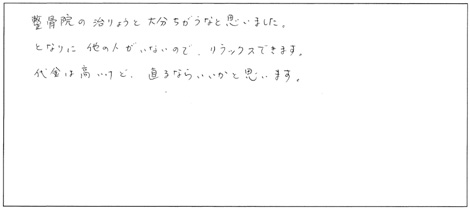 整骨院の治りょうと大分ちがうなと思いました。
となりに他の人がいないので、リラックスできます。
代金は高いけど、直るならいいかと思います。